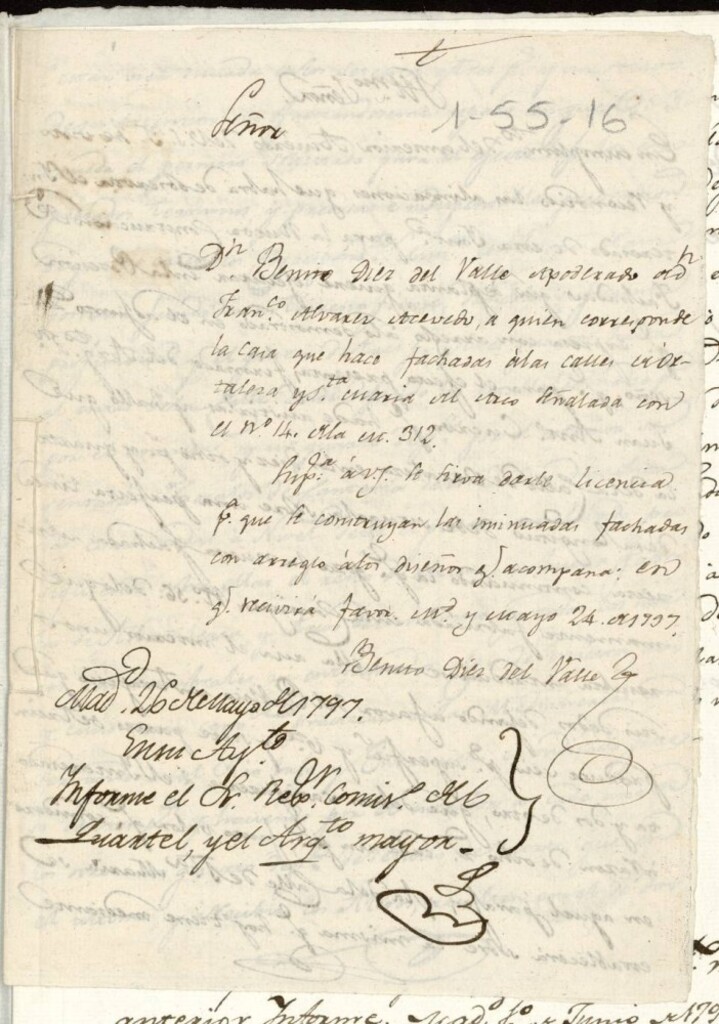 1-55-16
Señor
Dn Benito Diez del Valle apoderado de Dn
Franco Alvarez Acevedo, a quien corresponde
la casa que hace fachadas álas calles de Or-
taleza y Sta Maria del Arco señalada con
el no 14. dela m. 312.
Supca á V.S. se sirva darle licencia
pa. que se construyan las insinuadas fachadas
con arreglo álos diseños q.e acompaña: en
q.e recivirá favor. Md. y Mayo 24. de 1797.
Benito Diez del Valle
Madd. 26 de Mayo de 1797.
En su Ayto
Informe el Sr. Rexor. Comiso. del
Quartel, y el Arqto mayor.
anterior Informe. Mado. 1o de Junio de 179